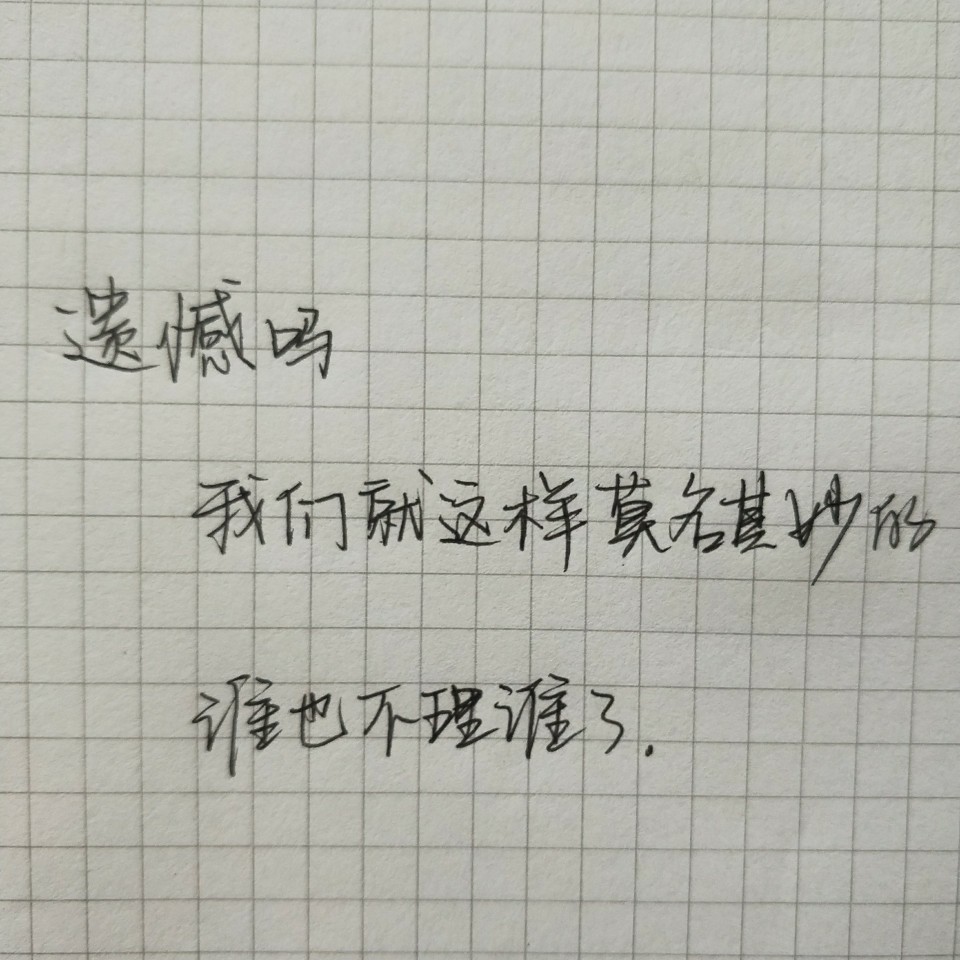 遗憾吗
我们就这样莫名其妙的
谁也不理谁了.